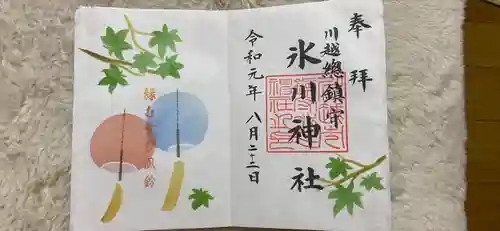 奉拝
川越總鎮守
氷川神社
令和元年 八月二十三日
縁むすび風鈴